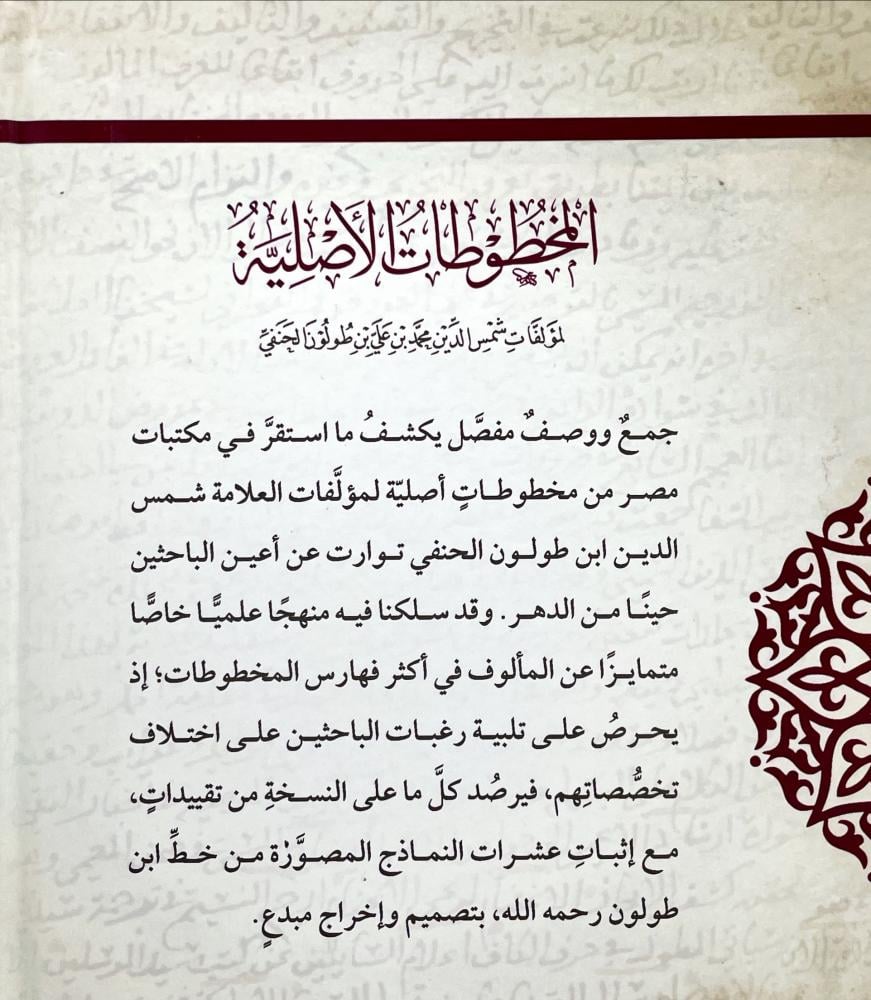 المَخْطُوطَاتُ الأَصْلِيَّةُ
لمؤلفَاتِ شَمْسِ الدِّيْنِ مُحَمَّدِ بْنِ عَلِيِّ بْنِ طُولُونَ الحَنَفِيِّ
جمعٌ ووصفٌ مفصَّل يكشفُ ما استقرَّ في مكتبات
مصر من مخطوطاتٍ أصليّة لمؤلَّفات العلامة شمس
الدين ابن طولون الحنفي توارت عن أعين الباحثين
حينًا من الدهر. وقد سلكنا فيه منهجًا علميًّا خاصًّا
متمايزًا عن المألوف في أكثر فهارس المخطوطات؛ إذ
يحرصُ على تلبية رغبات الباحثين على اختلاف
تخصُّصاتِهم، فيرصُد كلَّ ما على النسخةِ من تقييداتٍ،
مع إثباتِ عشرات النماذج المصوَّرْة من خطِّ ابن
طولون رحمه الله، بتصميم وإخراج مبدعٍ.